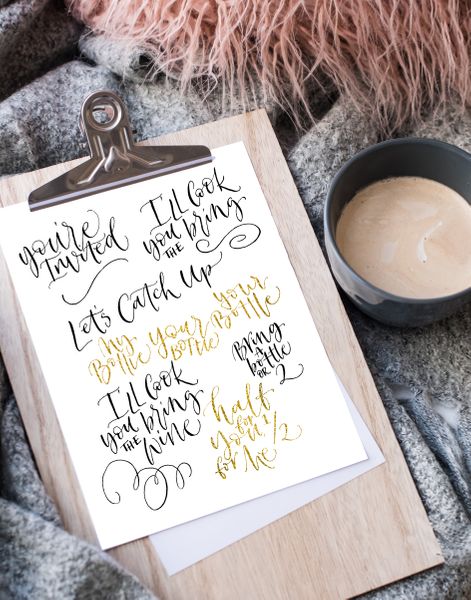 you're
Invited
I'll Cook
you bring
THE
Let's Catch Up
My
Bottle
your
BOTTLE
your
Bottle
Bring
A
bottle
OR 2
I'll Cook
you bring
THE
Wine
half
for
you
1/2
for Me